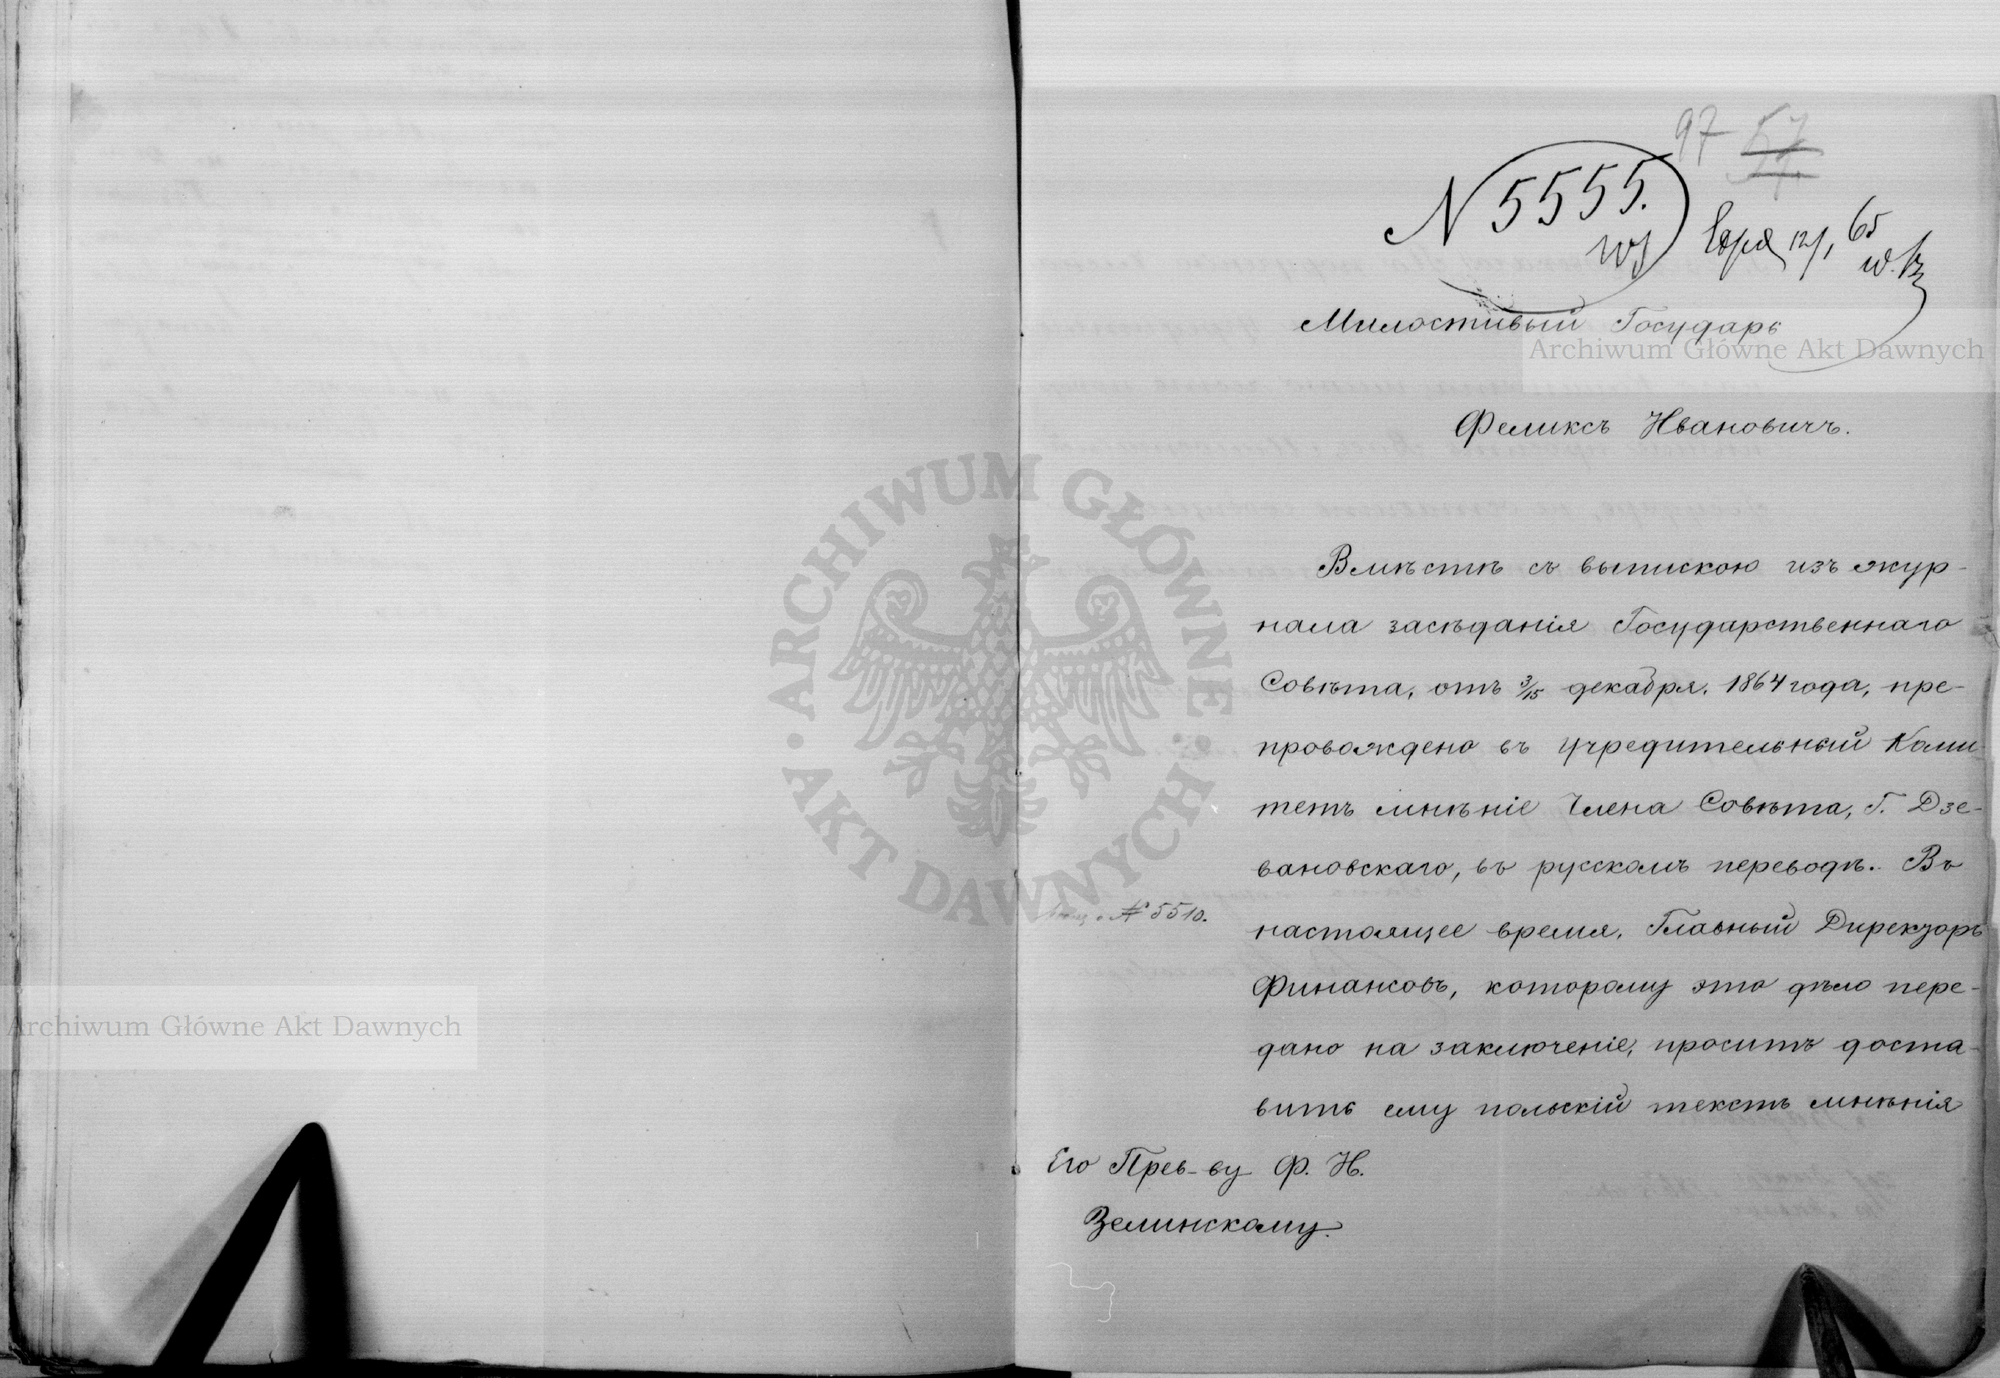 97 57
N 5555.
65
Милостивый Государь
Archiwum Główne Akt Dawnych
Феликсъ Ивановичъ.
ARCHIWUM GŁÓWNE • AKT DAWNYCH •
Вмѣстѣ съ выпискою изъ жур-
нала засѣданія Государственнаго
Совѣта, отъ 3/15 декабря, 1864 года, пре-
провождено въ учредительный Коми-
тетъ мнѣніе Члена Совѣта, Г. Дзе-
вановскаго, въ русскомъ переводѣ. Въ
№ 5510.
настоящее время, Главный Директоръ
Финансовъ, которому это дѣло пере-
Archiwum Główne Akt Dawnych
дано на заключеніе, проситъ доста-
вить ему польскій текстъ мнѣнія
Его Прев-ву Ф. И.
Зелинскому.